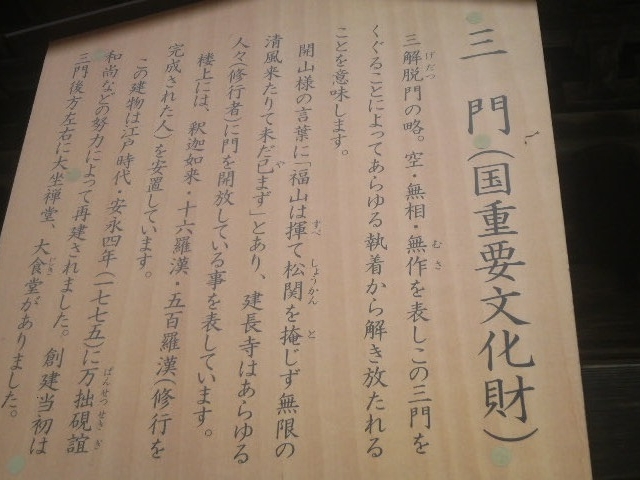 三門(国重要文化財)
三解脱門の略。空・無相・無作を表しこの三門を
くぐることによってあらゆる執着から解き放たれる
ことを意味します。
開山様の言葉に「福山は揮て松関を掩じず無限の
清風来たりて未だ已まず」とあり、建長寺はあらゆる
人々(修行者)に門を開放している事を表しています。
楼上には、釈迦如来・十六羅漢・五百羅漢(修行を
完成された人)を安置しています。
この建物は江戸時代・安永四年(一七七五)に万拙碩誼
和尚などの努力によって再建されました。創建当初は
三門後方左右に大坐禅堂、大食堂がありました。